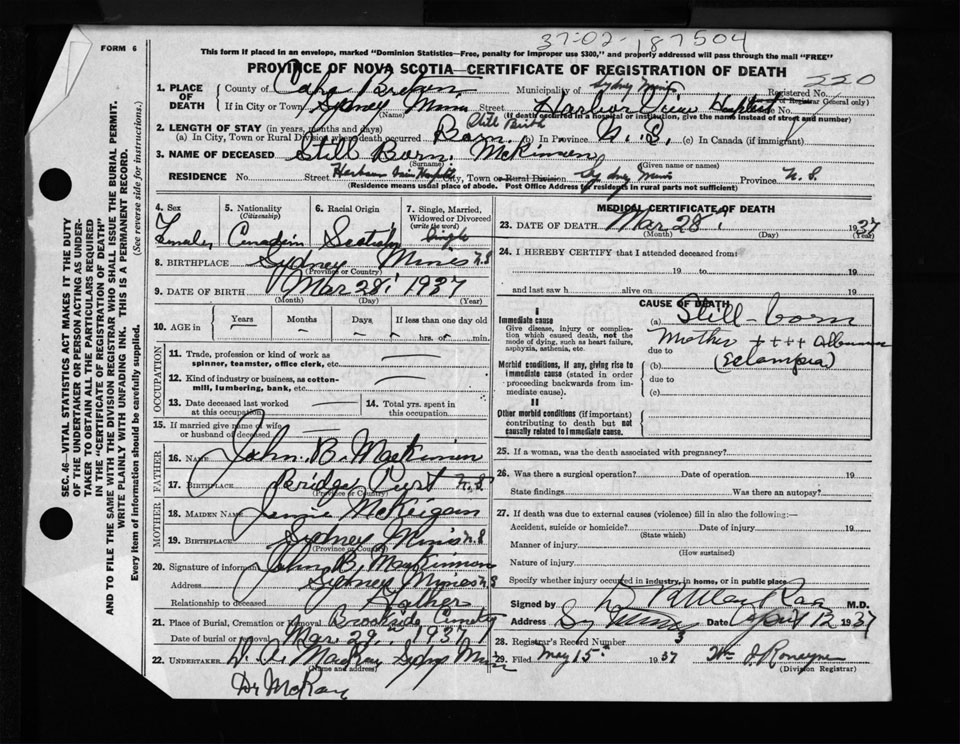 37-02-187504
FORM 6
This form if placed in an envelope, marked "Dominion Statistics—Free, penalty for improper use $300," and properly addressed will pass through the mail "FREE"
PROVINCE OF NOVA SCOTIA—CERTIFICATE OF REGISTRATION OF DEATH
220
1. PLACE OF DEATH
County of Cape Breton Municipality of Sydney Mines Registered No.
(For use of Registrar General only)
If in City or Town Sydney Mines Street Harbor View Hospital No.
(Name) (If death occurred in hospital or institution, give the name instead of street and number)
2. LENGTH OF STAY (in years, months and days) Still Birth
(a) In City, Town or Rural Division where death occurred Born (b) in Province N. S. (c) In Canada (if immigrant)
3. NAME OF DECEASED Still Born. McKinnon
(Surname) (Given name or names)
RESIDENCE No. Street Harbour View Hospital City, Town or Rural Division Sydney Mines Province N. S.
(Residence means usual place of abode. Post Office Address for residents in rural parts not sufficient)
SEC. 46—VITAL STATISTICS ACT MAKES IT THE DUTY
OF THE UNDERTAKER OR PERSON ACTING AS UNDER-
TAKER TO OBTAIN ALL THE PARTICULARS REQUIRED
IN THE "CERTIFICATE OF REGISTRATION OF DEATH"
AND TO FILE THE SAME WITH THE DIVISION REGISTRAR WHO SHALL ISSUE THE BURIAL PERMIT.
WRITE PLAINLY WITH UNFADING INK. THIS IS A PERMANENT RECORD.
Every item of information should be carefully supplied. (See reverse side for instructions.)
4. Sex 5. Nationality 6. Racial Origin 7. Single, Married,
(Citizenship) Widowed or Divorced
(write the word)
Female Canadian Scotish Single
8. BIRTHPLACE Sydney Mines N.S
(Province or Country)
9. DATE OF BIRTH Mar 28 1937
(Month) (Day) (Year)
10. AGE in Years Months Days If less than one day old
hrs. or min.
OCCUPATION
11. Trade, profession or kind of work as
spinner, teamster, office clerk, etc.
12. Kind of industry or business, as cotton-
mill, lumbering, bank, etc.
13. Date deceased last worked at this occupation
14. Total yrs. spent in this occupation.
15. If married give name of wife or husband of deceased
FATHER
16. Name John. B. MacKinnon
17. Birthplace Bridge Port N.S
(Province or Country)
MOTHER
18. Maiden Name Jennie McKeigan
19. Birthplace Sydney Mines N.S
(Province or Country)
20. Signature of informant John B. MacKinnon
Address Sydney Mines N.S
Relationship to deceased Father
21. Place of Burial, Cremation or Removal Brookside Cemetry
Date of burial or removal Mar. 29th 1937
22. UNDERTAKER D. A. MacKay Sydney Mines
(Name and address)
Dr McRay
MEDICAL CERTIFICATE OF DEATH
23. DATE OF DEATH Mar 28 1937
(Month) (Day) (Year)
24. I HEREBY CERTIFY that I attended deceased from:
19 to 19
and last saw h alive on 19
CAUSE OF DEATH
I
Immediate cause (a) Still-born
Give disease, injury or complica-
tion which caused death, not the
mode of dying, such as heart failure,
asphyxia, asthenia, etc.
Mother ++++
due to
Morbid conditions, if any, giving rise to
immediate cause (stated in order
proceeding backwards from im-
mediate cause).
(b) (Eclampsia)
due to
(c)
II
Other morbid conditions (if important)
contributing to death but not
causally related to immediate cause.
25. If a woman, was the death associated with pregnancy?
26. Was there a surgical operation? Date of operation 19
State findings Was there an autopsy?
27. If death was due to external causes (violence) fill in also the following:—
Accident, suicide or homicide? Date of injury 19
(State which)
Manner of injury
(How sustained)
Nature of injury
Specify whether injury occurred in industry, in home, or in public place
Signed by M.D.
Address Sy Mines Date April 12 1937
28. Registrar's Record Number 3
29. Filed May 15th 1937 Wm J. Ronayne
(Division Registrar)